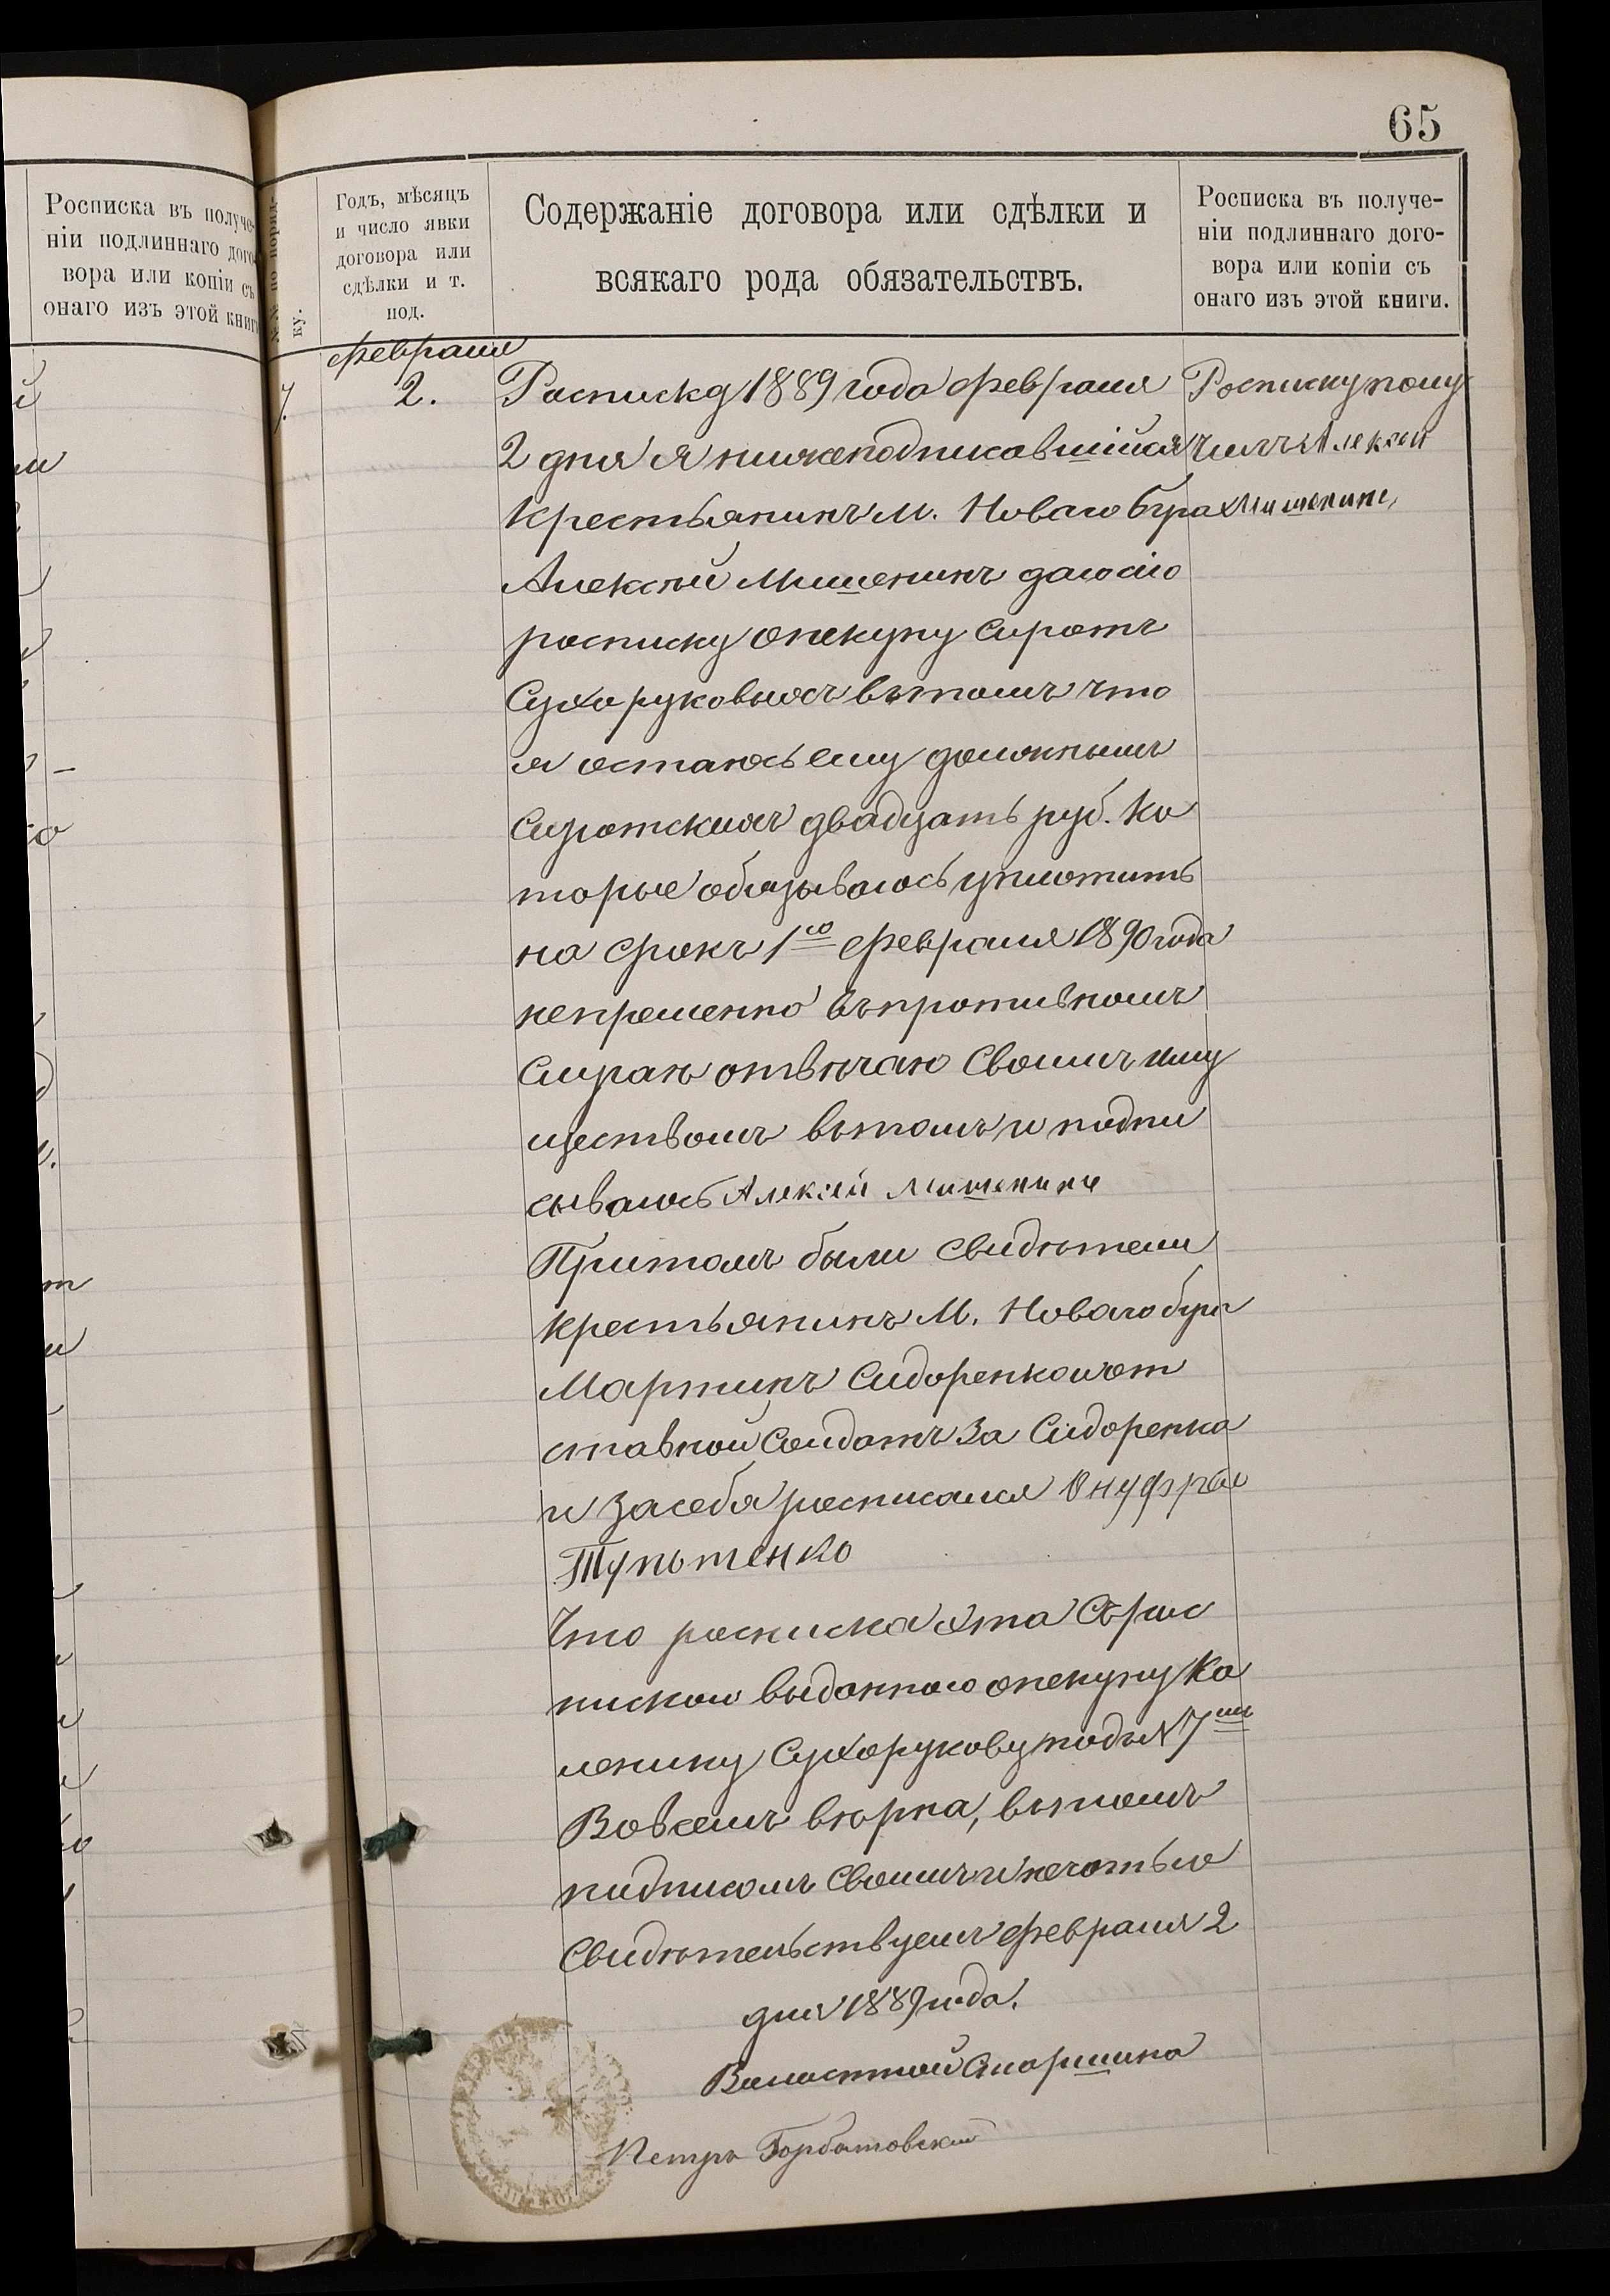 65
Росписка въ получе-
ніи подлиннаго дого-
вора или копіи съ
онаго изъ этой книги
№№ по поряд-
ку.
Годъ, мѣсяцъ
и число явки
договора или
сдѣлки и т.
под.
Содержаніе договора или сдѣлки и
всякаго рода обязательствъ.
Росписка въ получе-
ніи подлиннаго дого-
вора или копіи съ
онаго изъ этой книги.
7.
февраля
2.
Росписка 1889 года февраля
2 дня я нижеподписавшійся
крестьянинъ м. Новаго буга
Алексѣй Мишенинъ даю сію
росписку опекуну сиротъ
Сухоруковыхъ вътомъ что
я остаюсь ему должнымъ
сиротскихъ двадцать руб. ко
торые обязываюсь уплотить
на срокъ 1го февраля 1890 года
непременно въпротивномъ
случаѣ отвѣчаю своимъ иму
ществомъ вътомъ и подпи
сываюсь Алексѣй Мишенинъ
Притомъ были свидѣтели
крестьянинъ М. Новаго буга
Мартинъ Сидоренко и от
ставной солдатъ За Сидоренка
и засебя росписался Онуфрій
Тупотенко
Что росписка эта сърос
пискою выданною опекуну Ка
ленику Сухорукову подъ № 7мъ
Вовсемъ вѣрна, вътомъ
подписомъ своимъ и печатью
Свидѣтельствуемъ февраля 2
дня 1889 года.
Волостной старшина
Петръ Горбатовскій
Росписку полу
чилъ Алексѣй
Мишенинъ